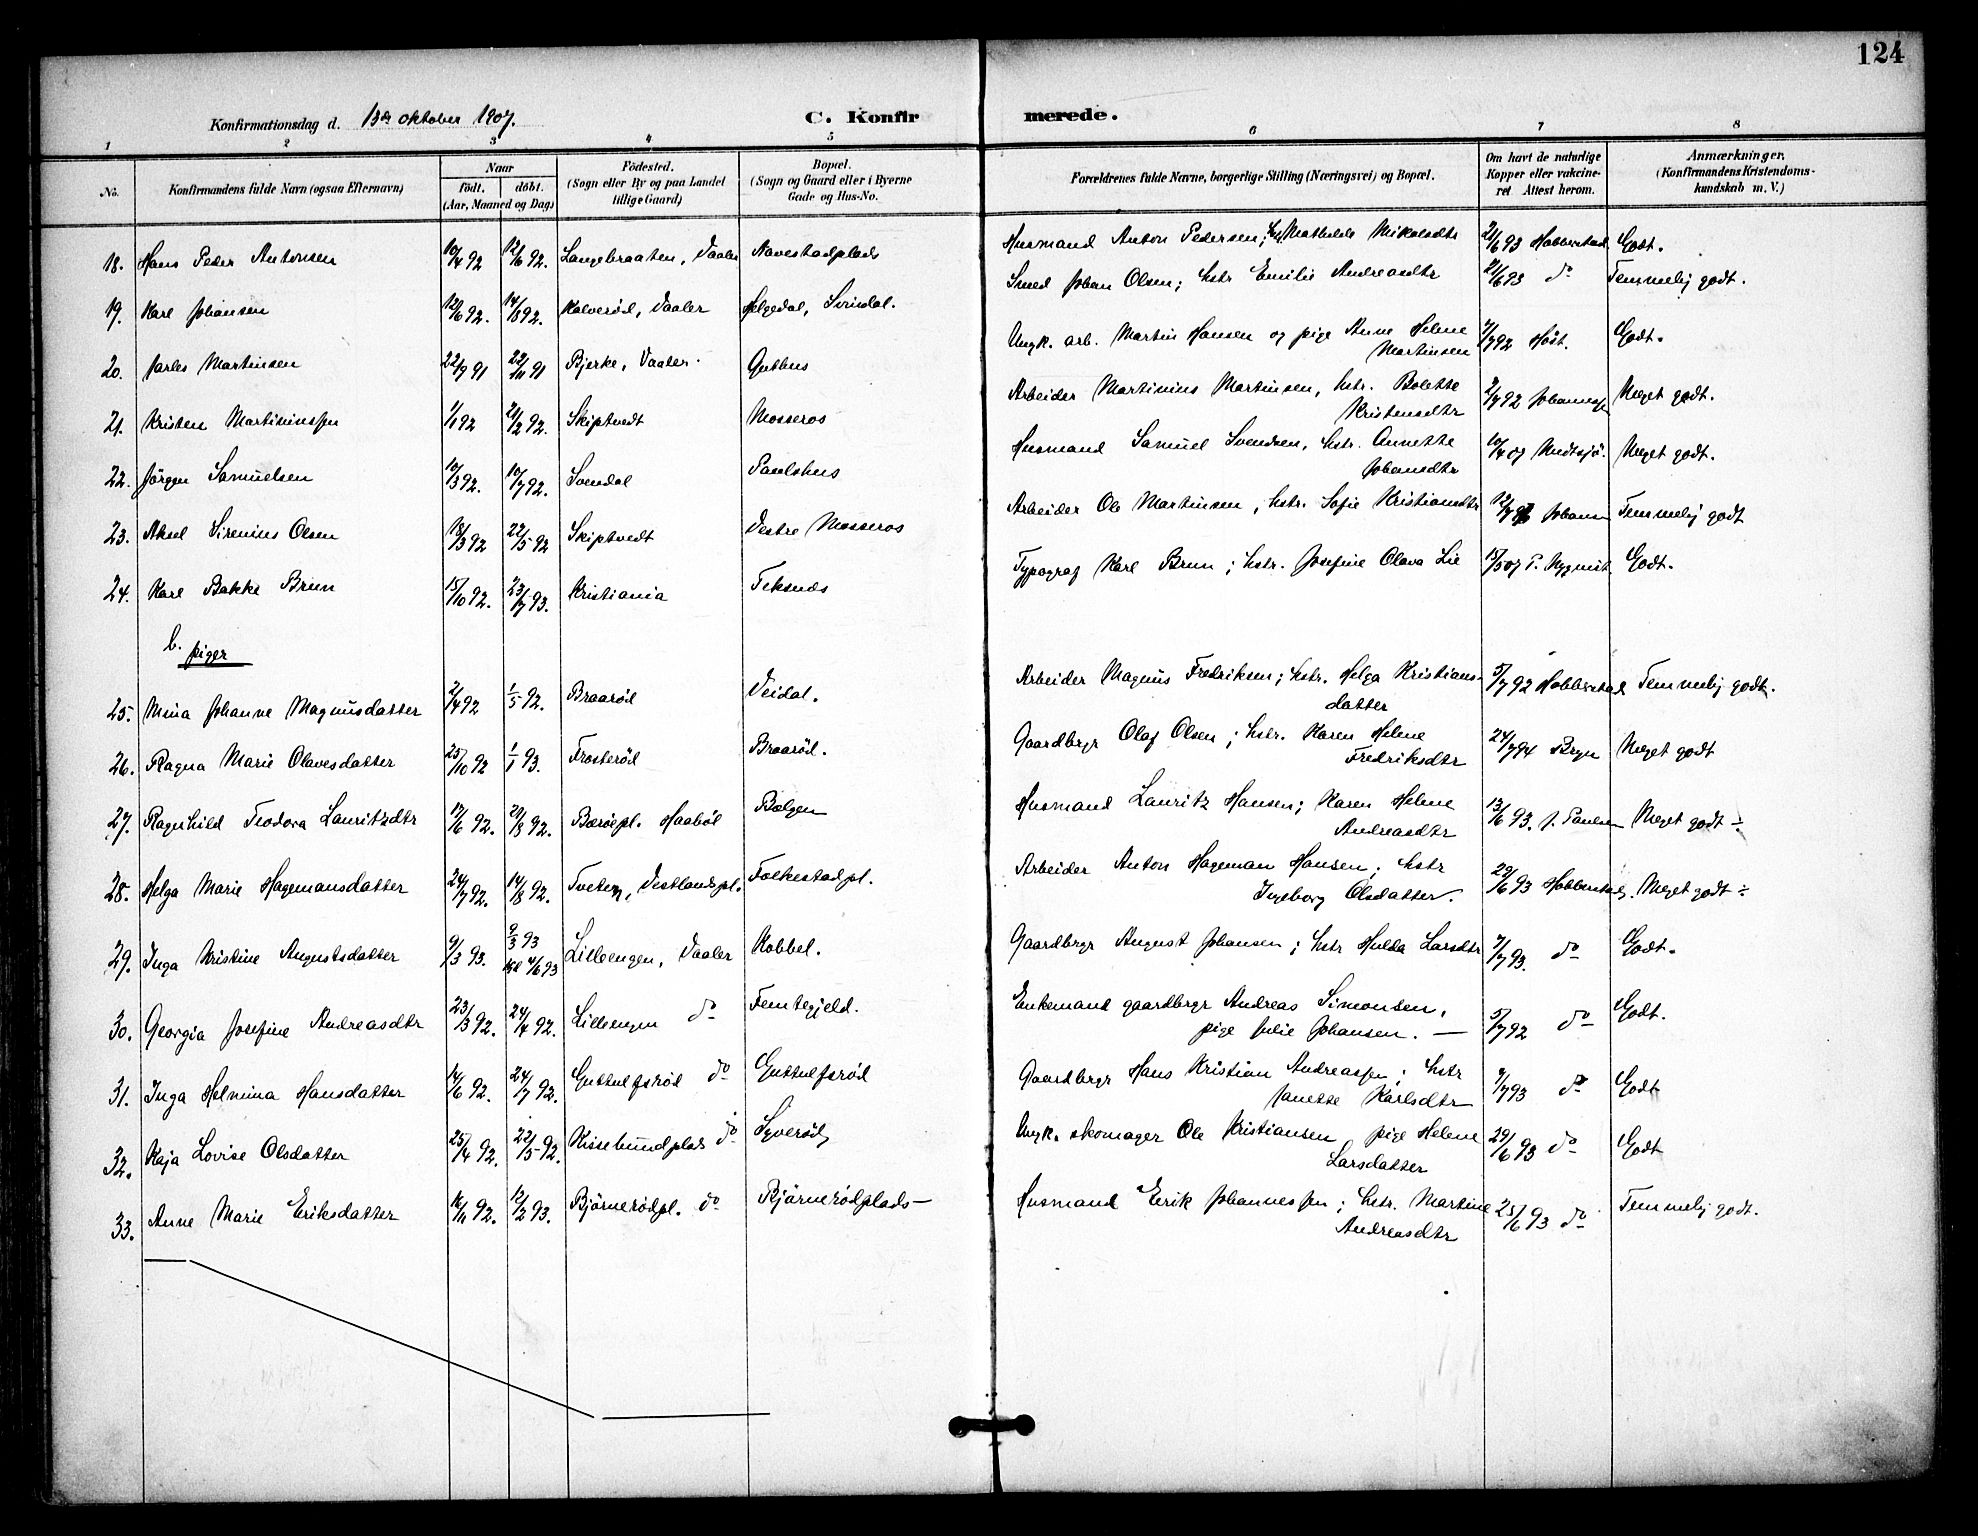 124
Konfirmationsdag d. 13de oktober 1907. C. Konfirmerede.
1 2 3 4 5 6 7 8
No. Konfirmandens fulde Navn (ogsaa Efternavn) Naar födt. döbt. (Aar, Maaned og Dag) Födested. (Sogn eller By og paa Landet tillige Gaard) Bopæl. (Sogn og Gaard eller i Byerne Gade og Hus-No. Forældrenes fulde Navne, borgerlige Stilling (Næringsvei) og Bopæl. Om havt de naturlige Kopper eller vakcineret Attest herom. Anmærkninger. (Konfirmandens Kristendomskundskab m. V.)
18. Hans Peder Antonsen 10/4 92 12/6 92. Langebraaten, Vaaler Navestadplads Husmand Anton Pedersen; Mathilde Nikolsdtr 21/6 93 Hobberstad Godt.
19. Karl Johansen 12/6 92. 14/8 92. Kalverød, Vaaler Helgedal, Svindal. Smed Johan Olsen; hstr Emilie Andreasdtr 21/6 93 do Temmelig godt.
20. Jarles Martinsen 22/9 91 22/11 91 Bjerke, Vaaler. Guthus Ungk. arb. Martin Hansen og pige Anne Helene Martinsen 7/7 92 Høst. Godt.
21. Kristen Martiniussen 1/1 92 21/2 92. Skiptvedt Mosseros Arbeider Martinius Martinsen, hstr. Bolette Kristensdtr 2/7 92 Meget godt.
22. Jörgen Samuelsen 10/3 92. 10/7 92. Svendal Paulshus Husmand Samuel Svendsen, hstr. Annette Johansdtr 10/4 07 Meget godt.
23. Aksel Sirenius Olsen 18/3 92 22/5 92 Skiptvedt Vestre Mosseros Arbeider Ole Martinsen, hstr. Sofie Kristiansdtr Temmelig godt
24. Karl Bakke Brun 15/10 92. 23/7 93. Kristiania Teksnæs Typograf Karl Brun; hstr. Josefine Olava Lie 15/5 07 P. Nyquist. Godt.
b. piger
25. Mina Johanne Magnusdatter 2/4 92 1/5 92. Braarød Veidal. Arbeider Magnus Fredriksen; hstr. Helga Kristiansdatter 5/7 92 Hobberstad Temmelig godt.
26. Ragna Marie Olavesdatter 25/10 92 1/1 93. Frosterød Braarød. Gaardbrgr Olaf Olsen; hstr. Karen Helene Fredriksdtr 24/7 94 Bryn Meget godt
27. Ragnhild Teodora Lauritzdtr 17/6 92. 28/8 92. Bærøepl. Haabøl Bølgen Husmand Lauritz Hansen; Karen Helene Andreasdtr 13/6 93. J. Paulsen Meget godt ÷
28. Helga Marie Hagemansdatter 24/7 92. 14/8 92. Tveten, Vestlandspl. Folkestadpl. Arbeider Anton Hageman Hansen; hstr Ingeborg Olsdatter. 29/6 93 Hobberstad. Meget godt ÷
29. Inga Kristine Augustsdatter 9/3 93. 9/3 93 4/6 93 Lilleengen, Vaaler Kobbel. Gaardbrgr August Johansen; hstr Hulda Larsdtr 7/7 93. do Godt.
30. Georgia Josefine Andreasdtr 23/3 92. 24/4 92. Lilleengen do Femtegjeld. Enkemand gaardbrgr Andreas Simonsen, pige Julie Johansen. — 5/7 92 do Godt.
31. Inga Helmina Hansdatter 14/6 92. 24/7 92. Guttulfsrød do Guttulfsrød Gaardbrgr Hans Kristian Andreassen; hstr Janette Karlsdtr 7/7 93 do Godt
32. Kaja Lovise Olsdatter 25/4 92. 22/5 92. Kissebundplads do Syverød Ungk. skomager Ole Kristiansen pige Helene Larsdatter 29/6 93 do Godt
33. Anne Marie Eriksdatter 16/11 92. 12/2 93. Bjørnerødpl. do Bjørnerødplads Husmand Erik Johannessen; hstr. Martine Andreasdtr 25/6 93 do Temmelig godt.